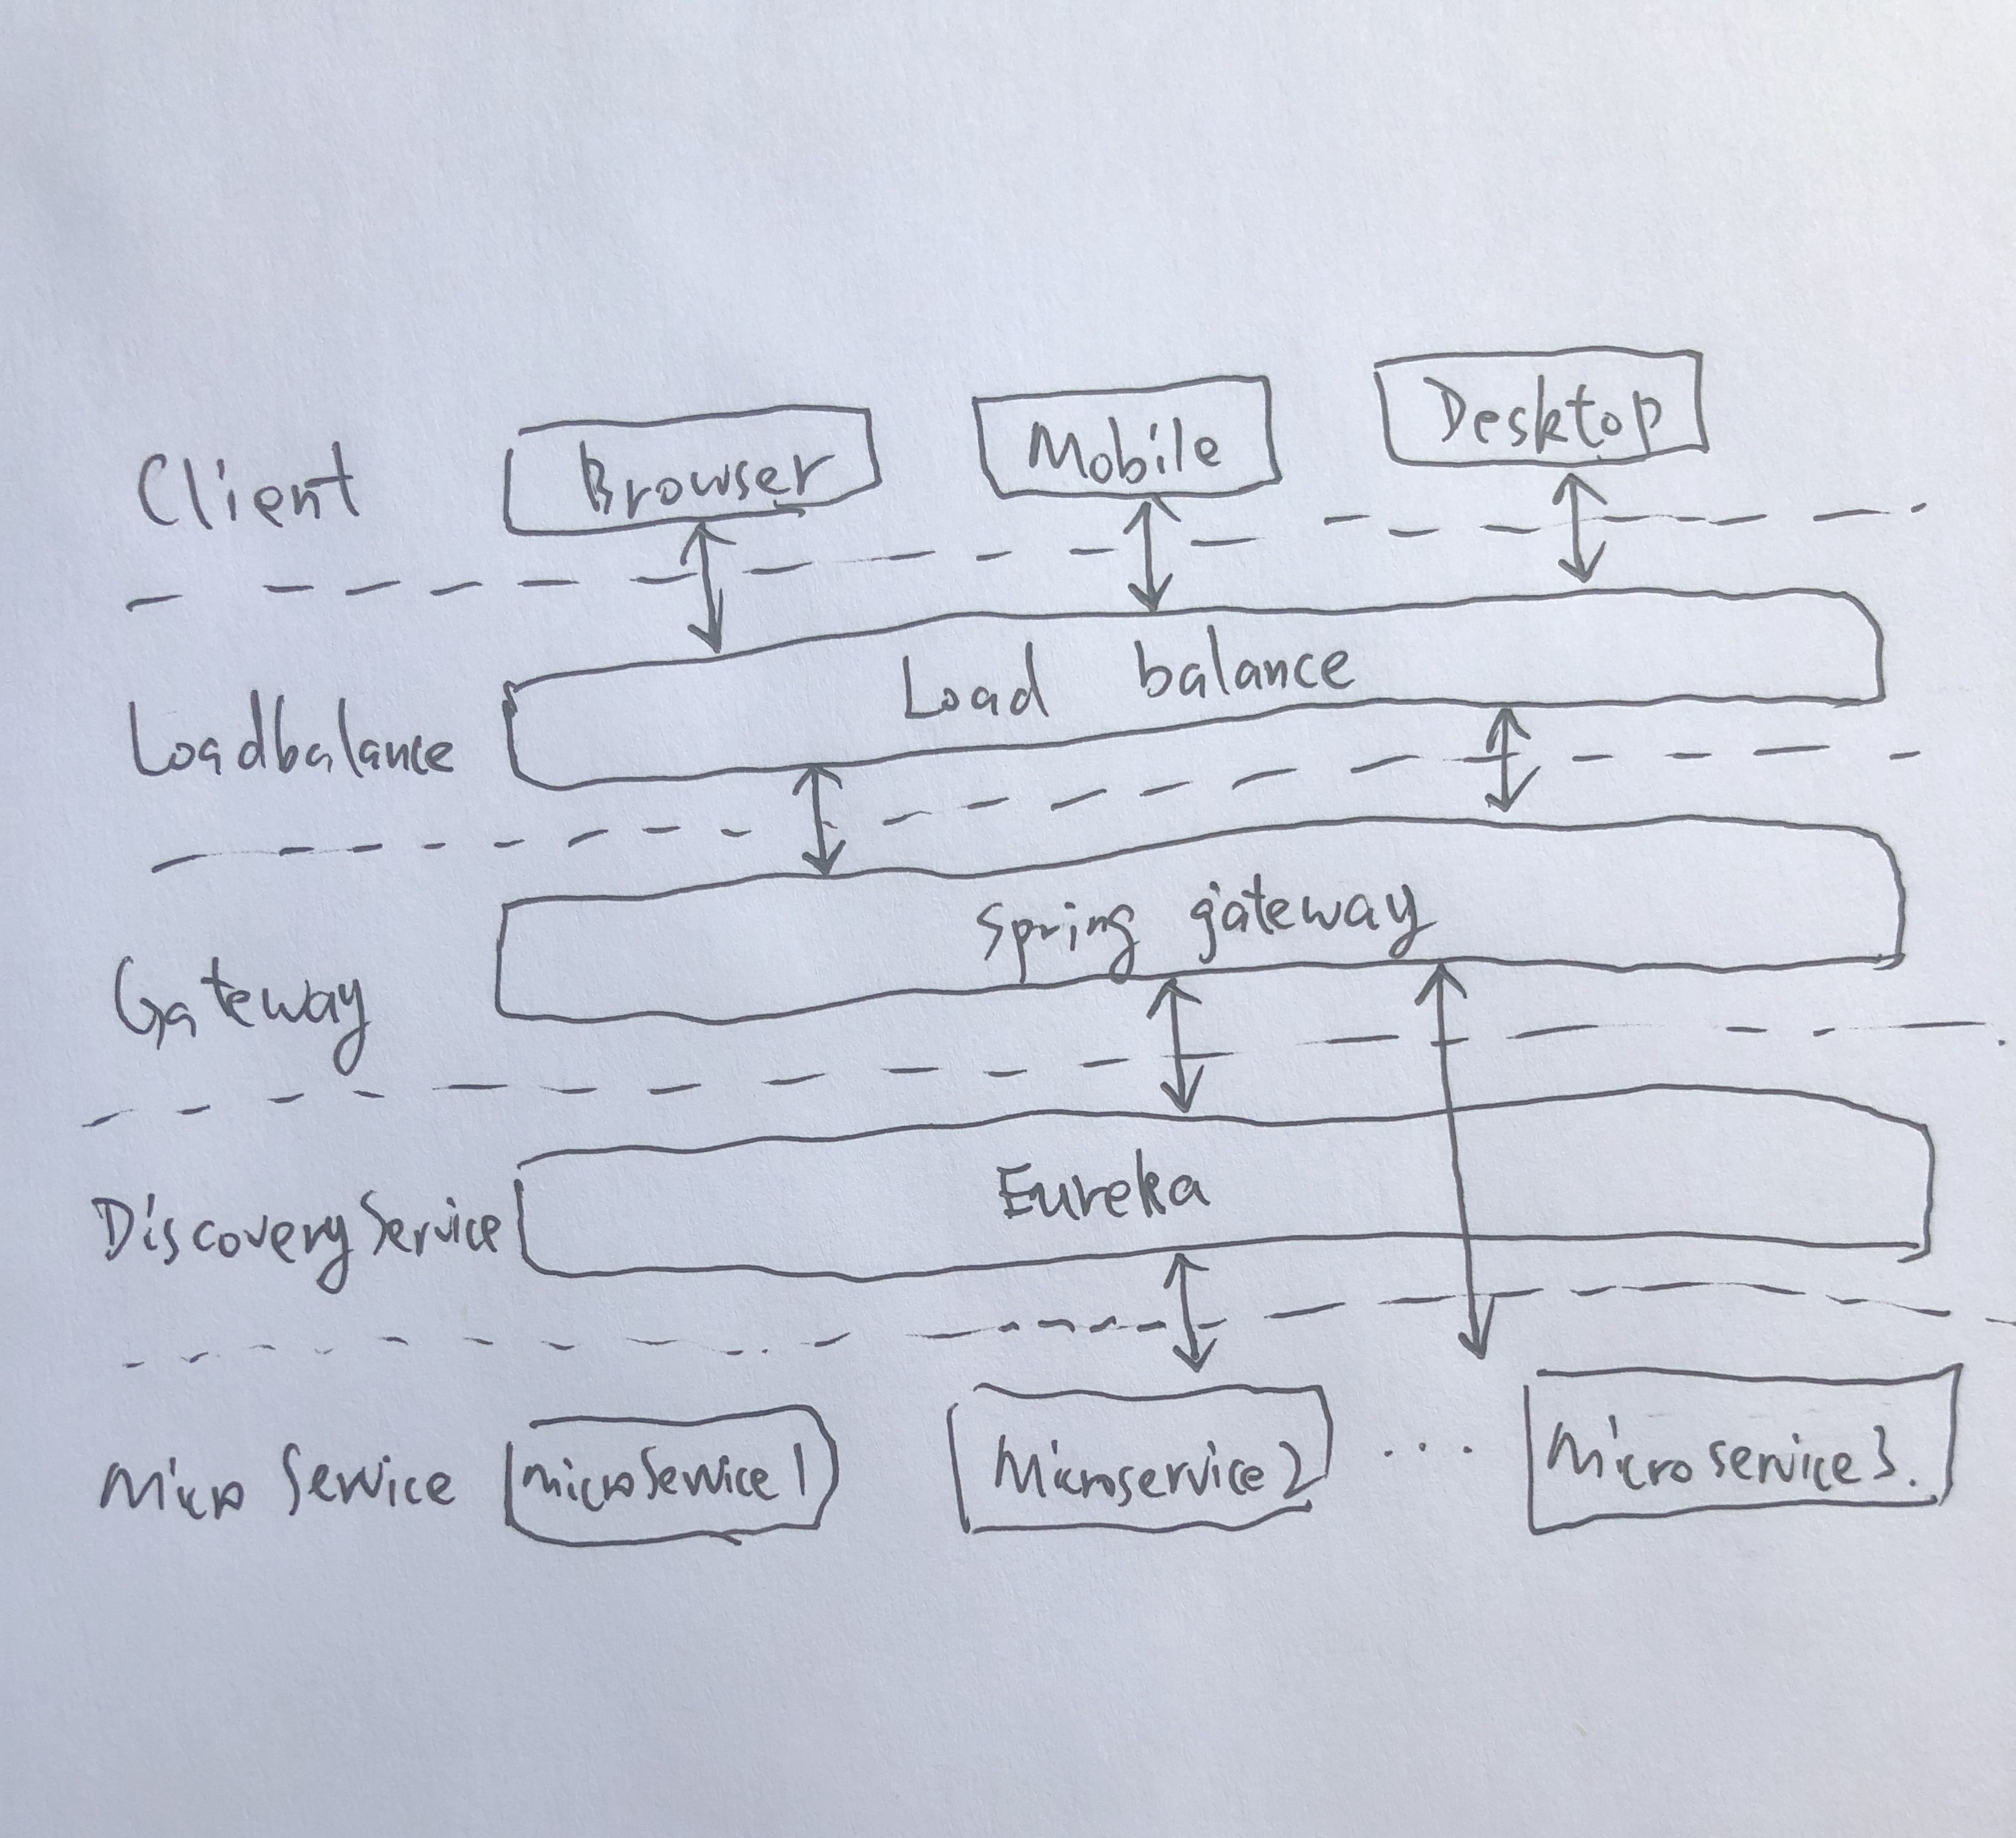 Client
Browser
Mobile
Desktop
Loadbalance
Load balance
Gateway
Spring gateway
Discovery Service
Eureka
Micro Service
microService1
Microservice2
...
Micro service3.